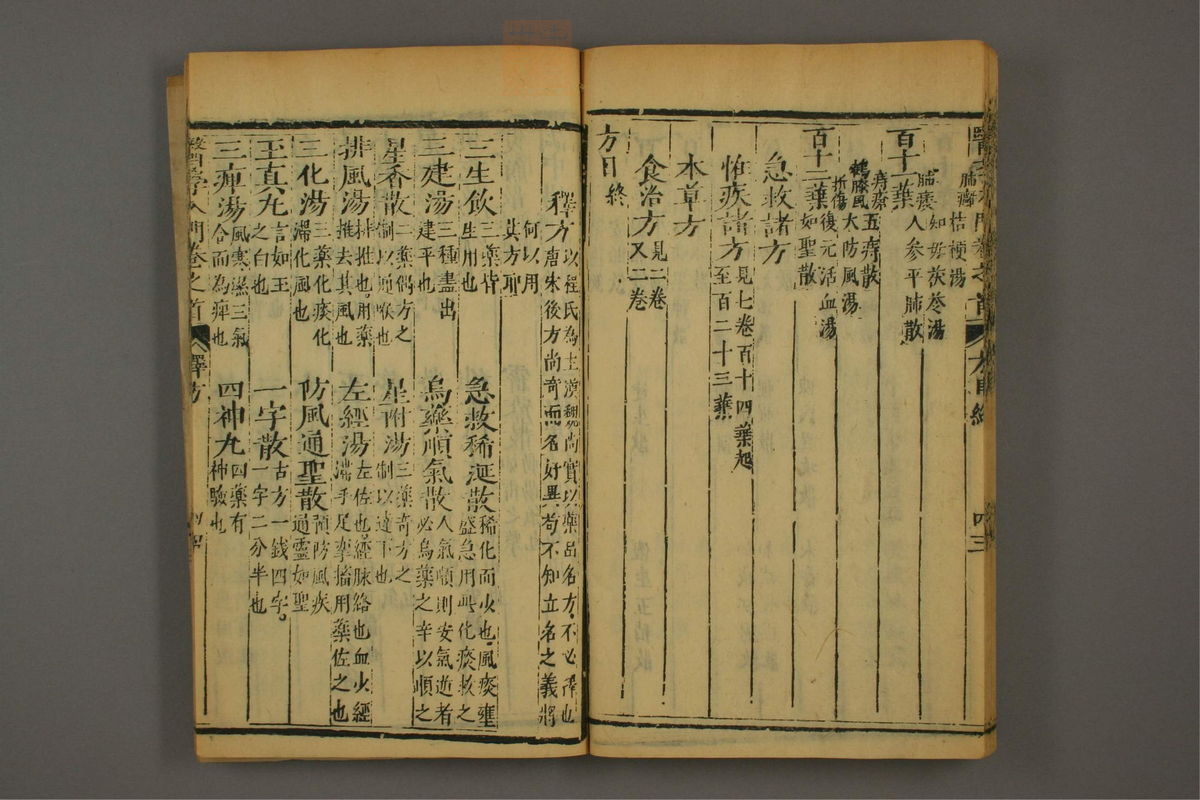 醫學入門卷之首 方目終 四三
肺癰 桔梗湯
肺痿 知母茯苓湯
人參平肺散
百十一葉
痔瘡 五痔散
鶴膝風 大防風湯
折傷 復元活血湯
百十二葉 如聖散
急救諸方
怪疾諸方 見七卷百十四葉起
至百二十三葉
本草方
食治方 見二卷
又二卷
方目終
釋方 以程氏為主漢魏尚實以藥品名方不必釋也
唐宋後方尚奇而名好異苟不知立名之義將
何以用
其方耶
三生飲 三藥皆
生用也
急救稀涎散 稀化而少也風痰壅
盛急用此化痰救之
三建湯 三種盡出
建平也
烏藥順氣散 人氣順則安氣逆者
必烏藥之辛以順之
星香散 二藥偶方之
制以通喉也
星附湯 三藥奇方之
制以達下也
排風湯 排推也用藥
推去其風也
左經湯 左佐也經脉絡也血少經
滯手足拳攣用藥佐之也
三化湯 三藥化痰化
滯化風也
防風通聖散 預防風疾
通靈如聖
玉真丸 言如玉
之白也
一字散 古方一錢四字
一字二分半也
三痺湯 風寒濕三氣
合而為痺也
四神丸 四藥有
神驗也
醫門學入門卷之首 釋方